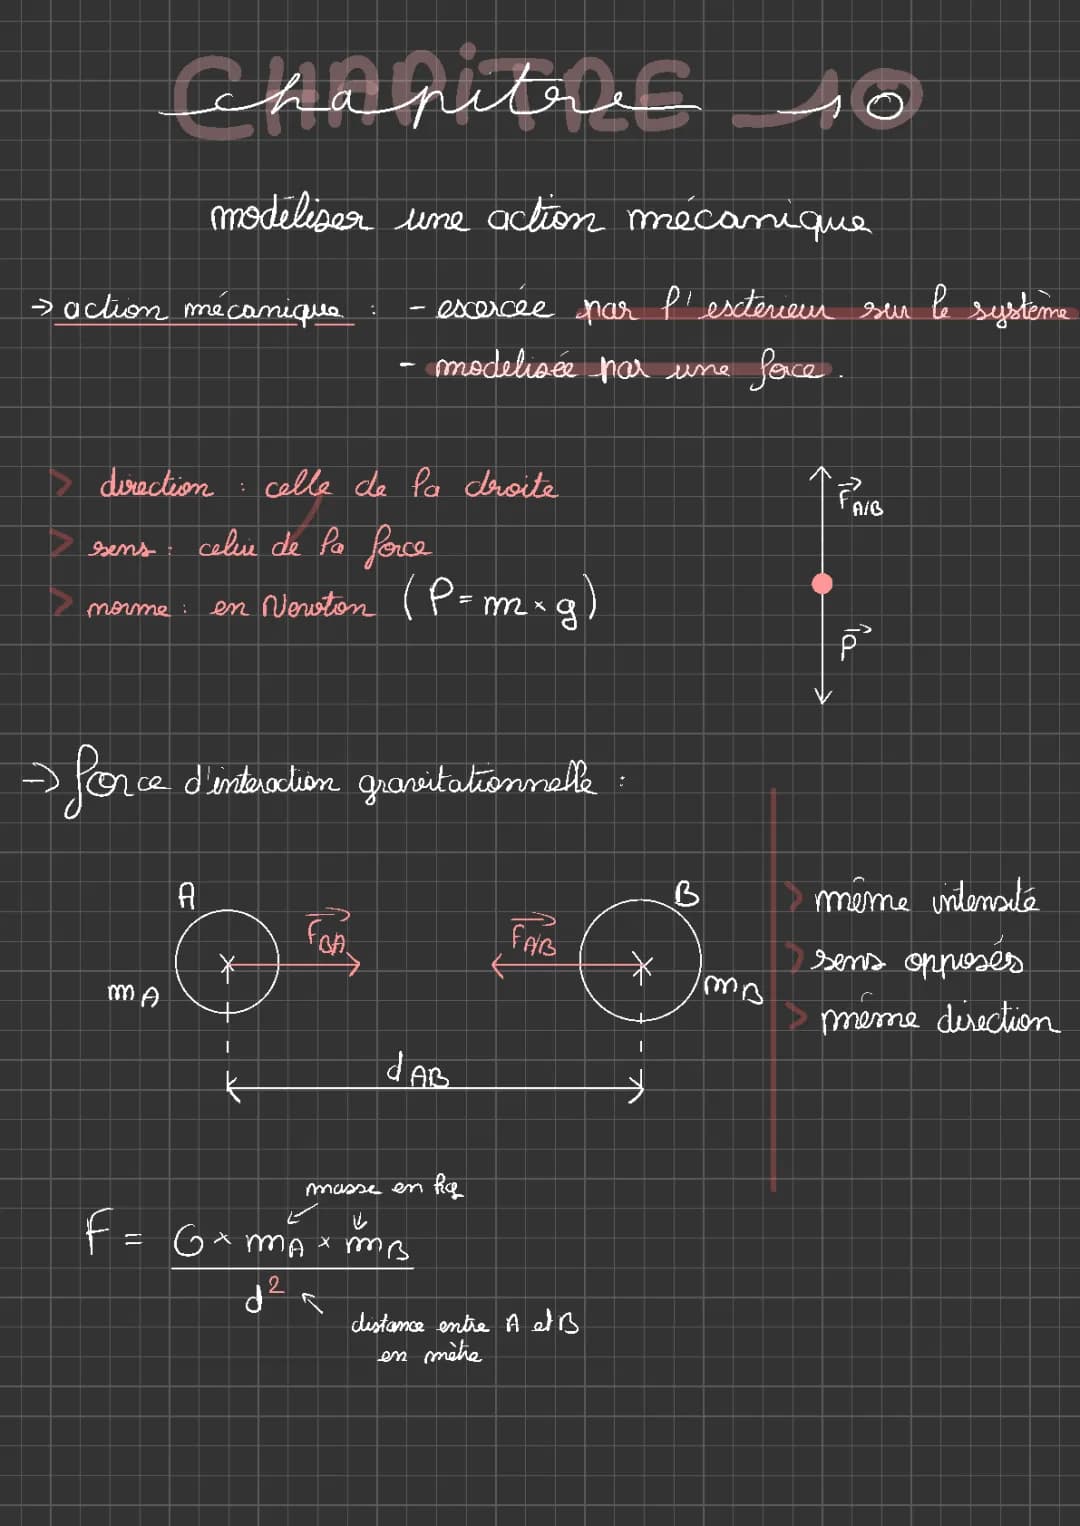 CHAPiTRE 10
chapitre 10
modéliser une action mécanique
→ action mécanique : - exercée par l'exterieur sur le système
- modelisée par une force.
> direction : celle de la droite
> sens : celui de la force
> norme : en Newton (P = m × g)
F A/B
P
→ force d'interaction gravitationnelle :
A
B
F B/A
F A/B
m A
m B
d AB
> même intensité
> sens opposés
> même direction
masse en kg
F = G × mA × mB
d²
distance entre A et B
en mètre